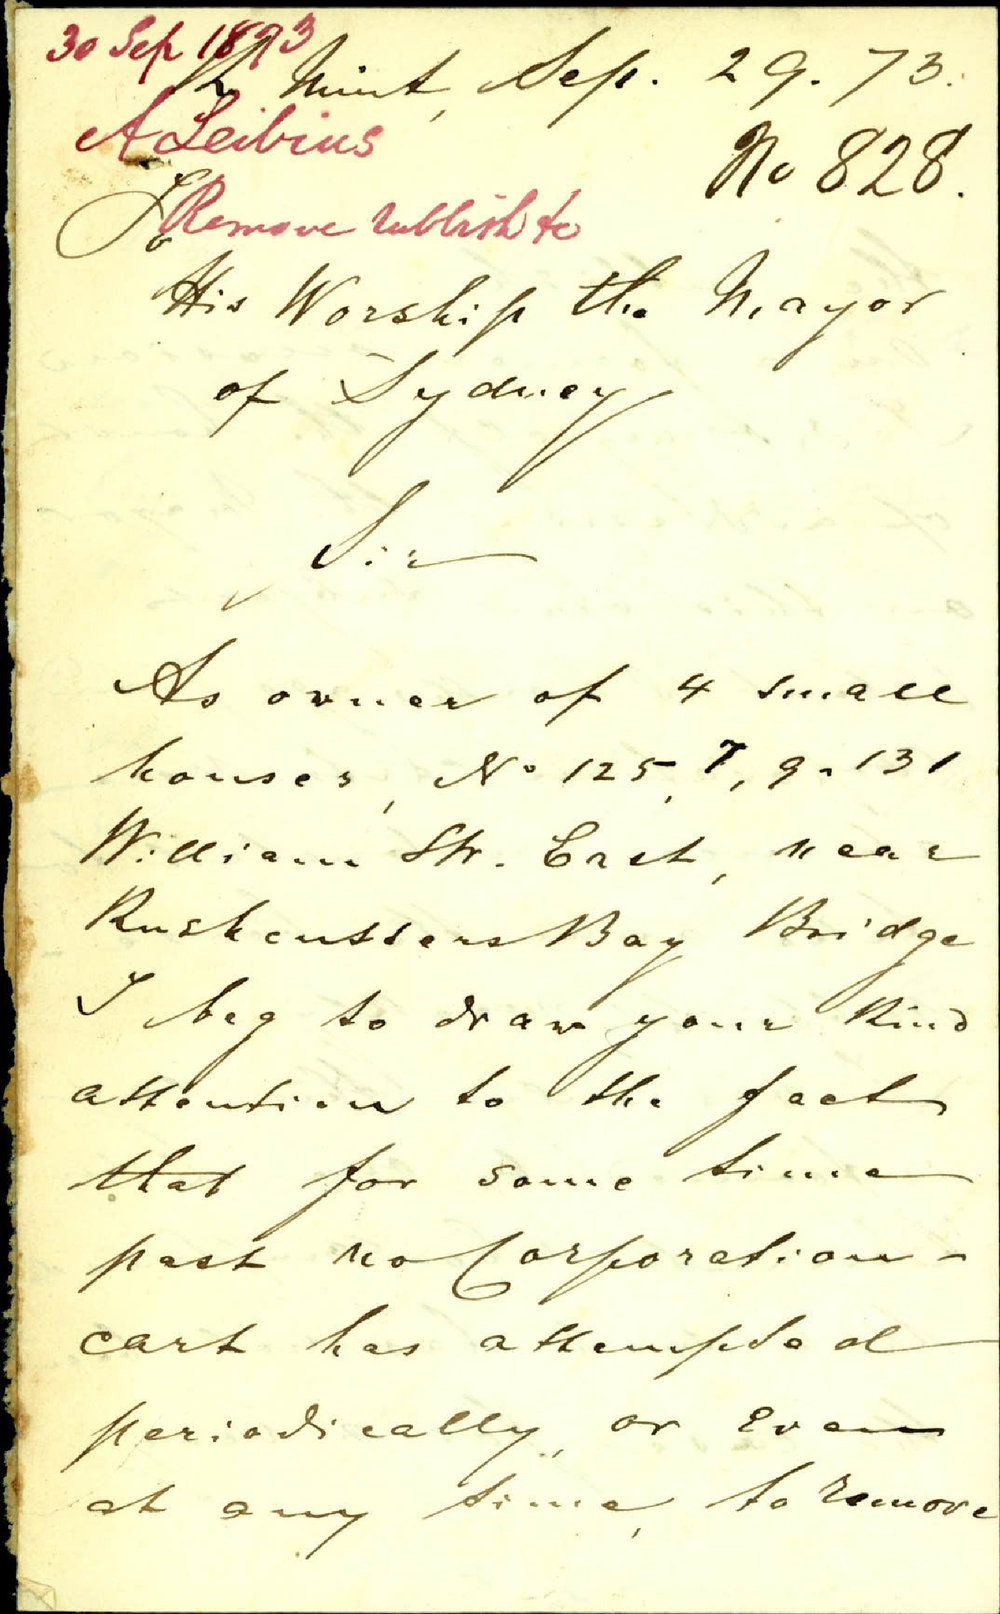 30 Sep 1873
The Mint, Sep. 29. 73.
A Leibius
No 828.
To
Remove rubbish &c
His Worship the Mayor
of Sydney
Sir
As owner of 4 small
houses, No 125, 7, 9 & 131
William Str. East, near
Rushcutters Bay Bridge
I beg to draw your kind
attention to the fact
that for some time
past no Corporation-
cart has attempted
periodically, or even
at any time, to remove